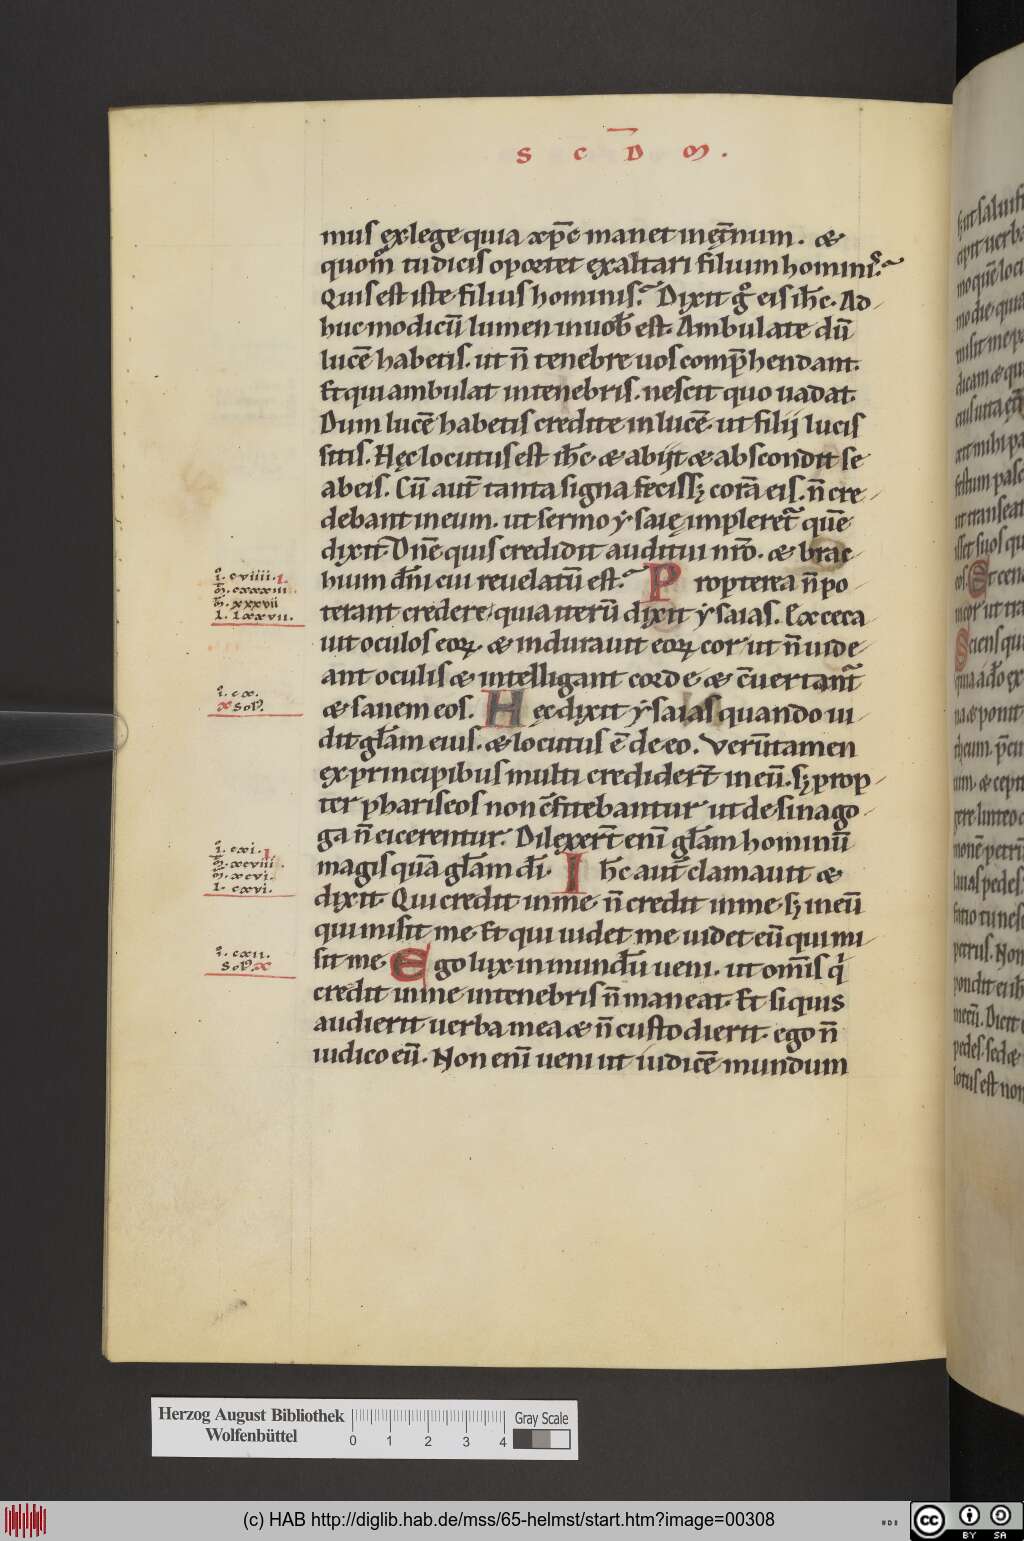 S C D M.
mus ex lege quia xp̄c manet inęt̄num. &
quom̊ tu dicis oportet exaltari filium hominiˢ?
Quis est iste filius hominis? Dixit g̊ eis ih̄c. Ad
huc modicū lumen in uob̄ est. Ambulate dū
lucē habetis. ut n̄ tenebre uos comp̄hendant.
Et qui ambulat in tenebris. nescit quo uadat.
Dum lucē habetis credite in lucē. ut filij lucis
sitis. Hęc locutus est ih̄c. & abijt & abscondit se
ab eis. Cū aut̄ tanta signa fecissꝫ corā eis. n̄ cre
debant in eum. ut sermo ẏsaię impleret̄ quē
dixit. Dn̄e quis credidit auditui nr̄o. & brac
hium dn̄i cui reuelatū est? Propterea n̄ po
terant credere. quia iterū dixit ẏsaias. Exceca
uit oculos eoꝝ. & indurauit eoꝝ cor ut n̄ uide
ant oculis & intelligant corde. & c̄uertant̄
& sanem eos. Hęc dixit ẏsaias quando ui
dit glām eius. & locutus ē de eo. Verūtamen
ex principibus multi crediderт̄ in eū. sꝫ prop
ter phariseos non c̄fitebantur ut de sinago
ga n̄ eicerentur. Dilexert̄ enī glām hominū
magis quā glām dī. Ih̄c aut̄ clamauit &
dixit. Qui credit in me. n̄ credit in me. sꝫ in eū
qui misit me. Et qui uidet me. uidet eū qui mi
sit me. Ego lux in mundū ueni. ut om̄is q̇
credit in me in tenebris n̄ maneat. Et si quis
audierit uerba mea & n̄ custodierit. ego n̄
iudico eū. Non enī ueni ut iudicē mundum
i̊. cviiii. I.
m̄. cxxxiii
m̄. xxxvii
l. lxxvii.
i̊. cx.
x sol̄.
i̊. cxi. I.
m̄. xcviii.
m̄. xcvi.
l. cxvi.
i̊. cxii.
Sol̄. x
Herzog August Bibliothek
Wolfenbüttel
0 1 2 3 4
Gray Scale
(c) HAB http://diglib.hab.de/mss/65-helmst/start.htm?image=00308
cc BY SA